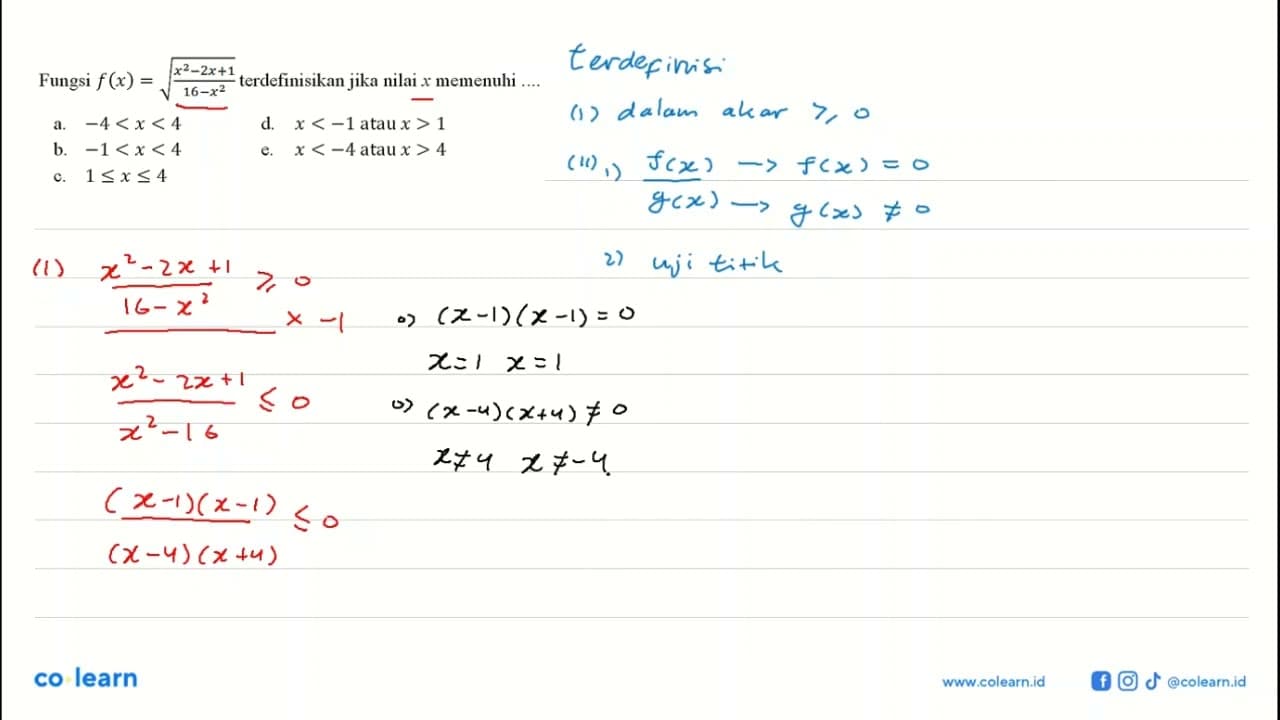 Fungsi f(x) = √((x²−2x+1)/(16−x²)) terdefinisikan jika nilai x memenuhi ....
a. −4 < x < 4
b. −1 < x < 4
c. 1 ≤ x ≤ 4
d. x < −1 atau x > 1
e. x < −4 atau x > 4
terdefinisi
(1) dalam akar ≥ 0
(11) 1) f(x)/g(x) → f(x) = 0
→ g(x) ≠ 0
2) uji titik
(1) (x² − 2x + 1)/(16 − x²) ≥ 0
x −1
(x² − 2x + 1)/(x² − 16) ≤ 0
(x−1)(x−1)/(x−4)(x+4) ≤ 0
o) (x−1)(x−1) = 0
x=1 x=1
o) (x−4)(x+4) ≠ 0
x≠4 x≠−4
co learn
www.colearn.id
@colearn.id